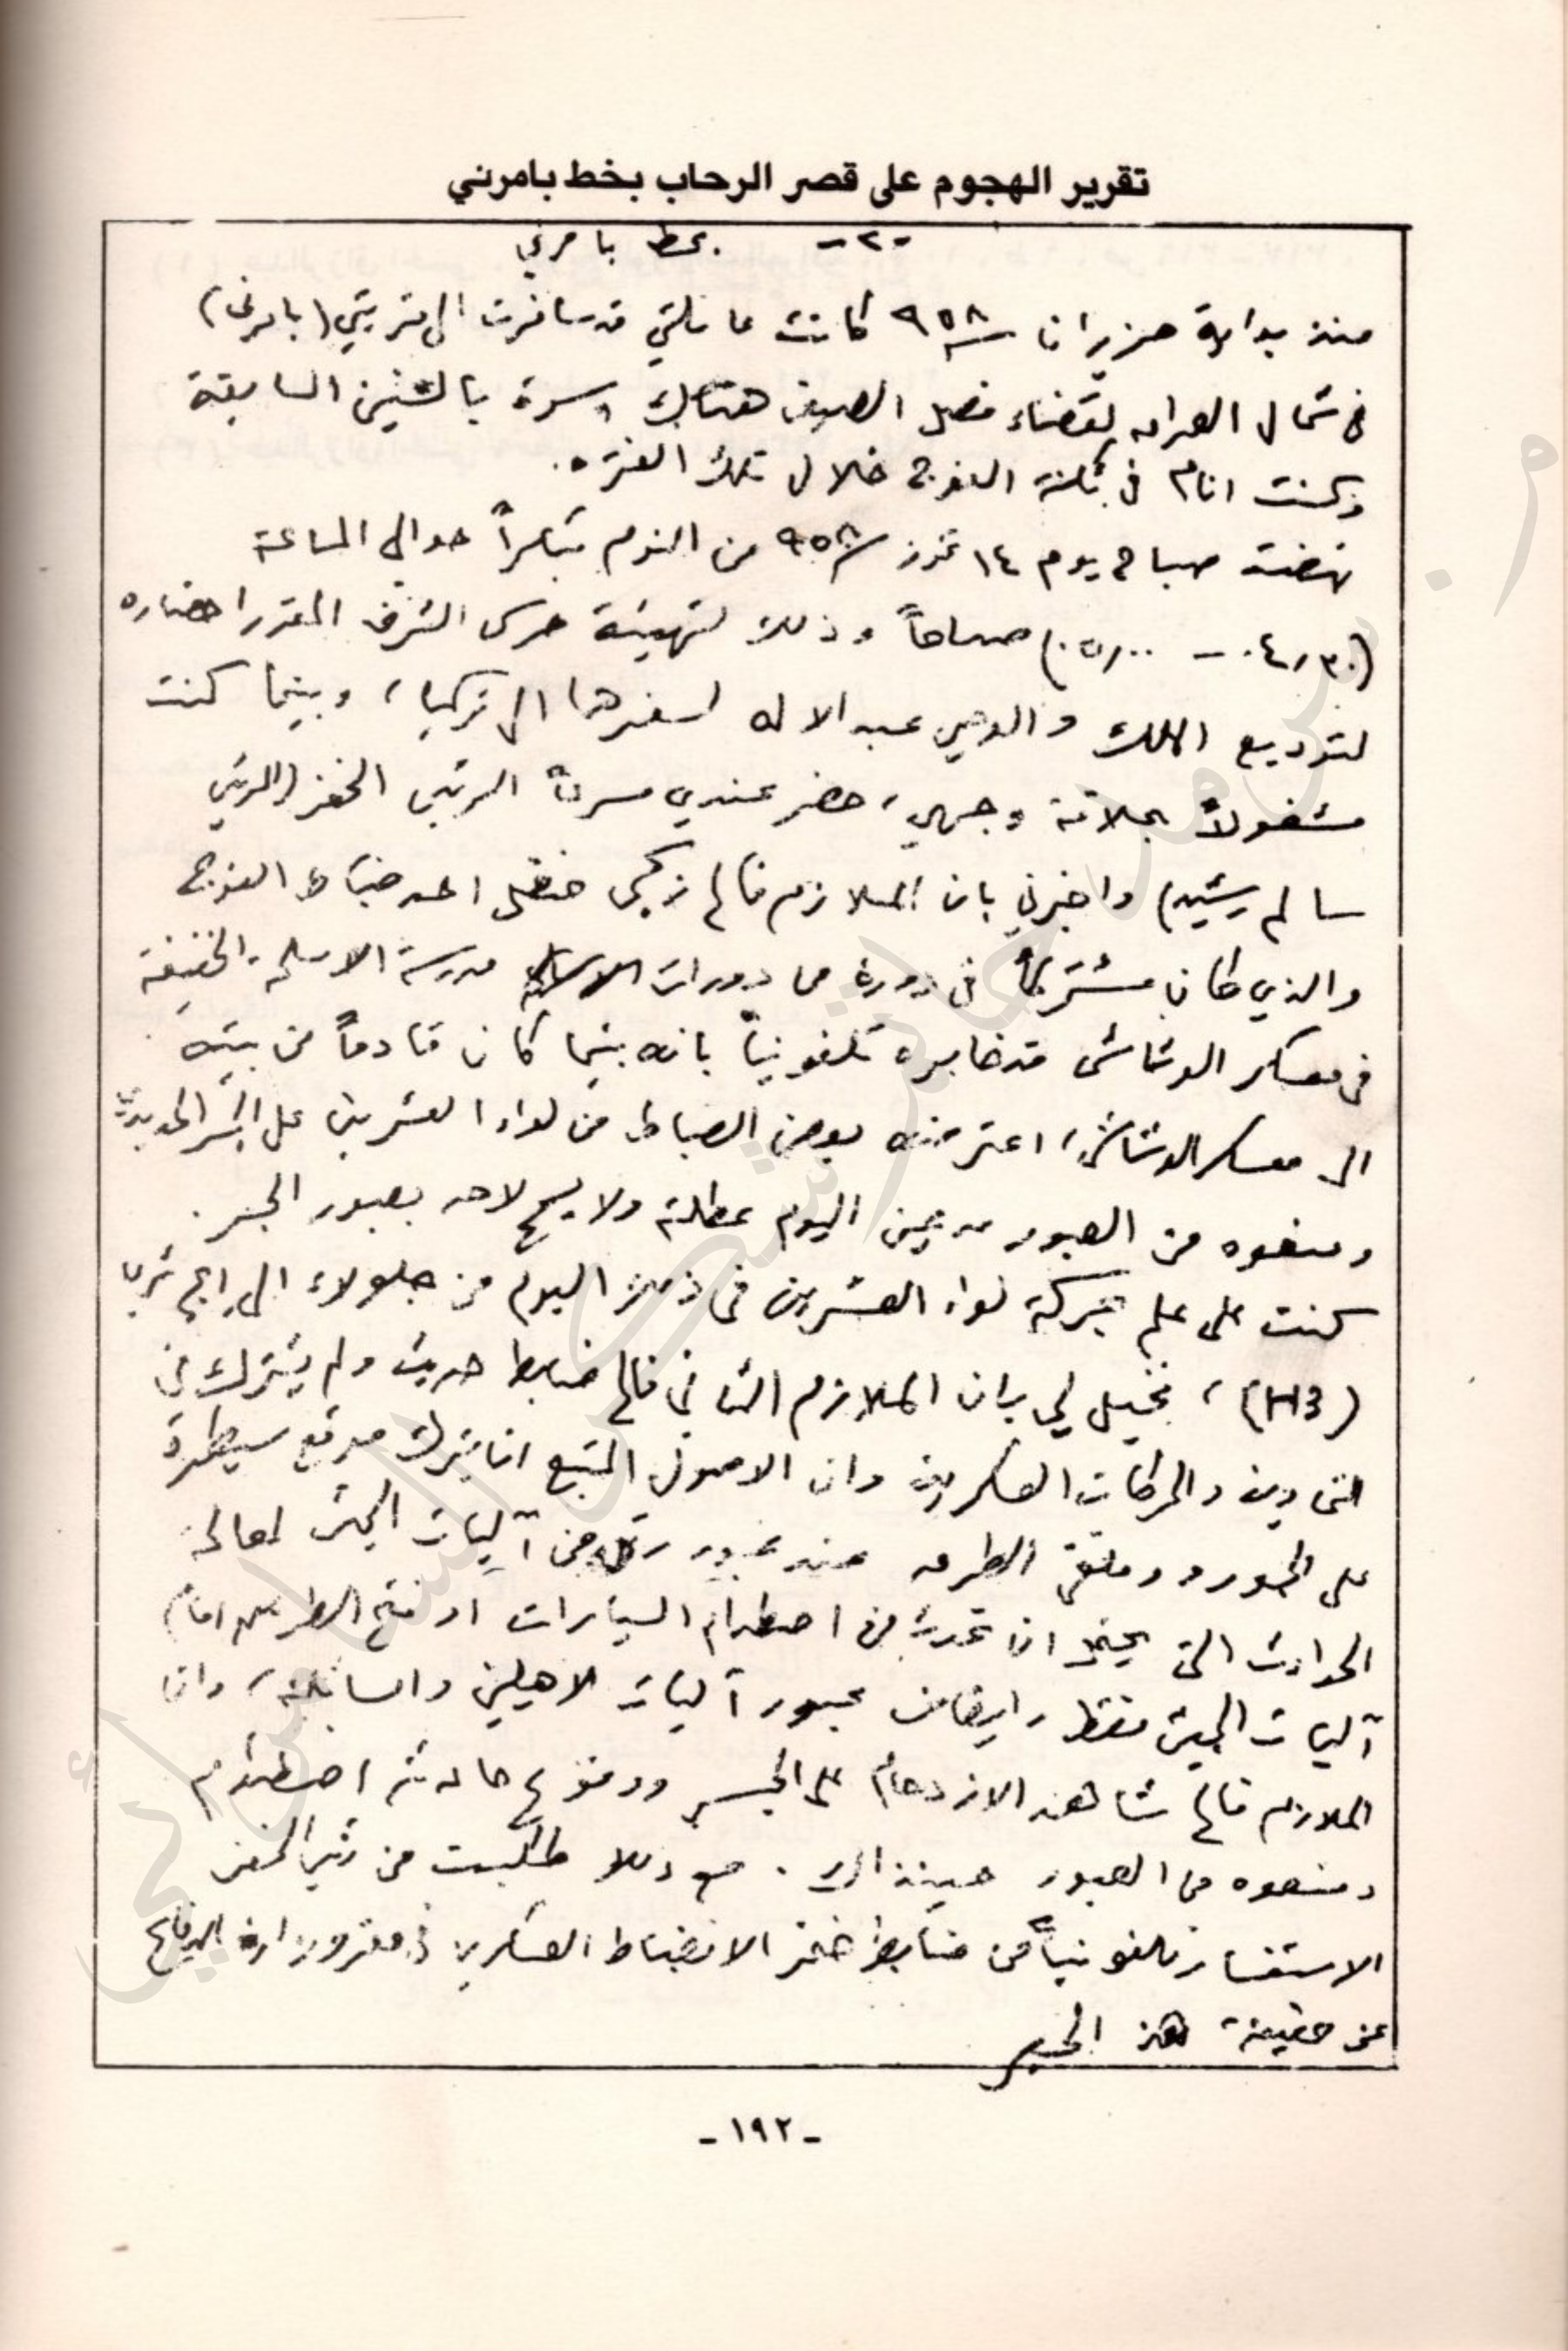 تقرير الهجوم على قصر الرحاب بخط بامرني
-٢- بخط بامرني
منذ بداية حزيران ٩٥٨ كانت عائلتي قد سافرت الى قريتي (بامرني)
في شمال العراق لقضاء فصل الصيف هناك اسوة بالسنين السابقة
وكنت انام في ثكنة الفوج خلال تلك الفترة.
نهضت صباح يوم ١٤ تموز ٩٥٨ من النوم مبكراً حوالي الساعة
(٠٤,٣٠ - ٠٥,٠٠) صباحاً وذلك لتهيئة حرس الشرف المقرر احضاره
لتوديع الملك والوصي عبد الاله لسفرهما الى تركيا، وبينما كنت
مشغولاً بحلاقة وجهي، حضر عندي مسرعاً الرئيس الخفر (الرئيس
سالم رشيد) واخبرني بان الملازم فالح زكي حنظل احد ضباط الفوج
والذي كان مشتركاً في دورة من دورات مدرسة الاسلحة الخفيفة
في معسكر الوشاش قد خابره تلفونياً بانه بينما كان قادماً من بيته
الى معسكر الوشاش، اعترضته بعض الضباط من لواء العشرين على الجسر الحديدي
ومنعوه من العبور مدعين اليوم عطلة ولا يسمح لاحد بعبور الجسر.
كنت على علم بحركة لواء العشرين في ذلك اليوم من جلولاء الى اج ثري
(H3)، فخيل لي بان الملازم الثاني فالح ضابط حديث ولم يشترك في
التمارين والحركات العسكرية وان الاصول المتبع ان يترك موقع سيطرة
على الجسور وملتقى الطرق عند عبور رتل من آليات الجيش لمعالجة
الحوادث التي يحتمل ان تحدث من اصطدام السيارات او فتح الطريق امام
آليات الجيش فقط وايقاف عبور آليات الاهلين والسابلة، وان
الملازم فالح شاهد الازدحام على الجسر ووقوع حادثة اصطدام
ومنعوه من العبور حينذاك. مع ذلك طلبت من رئيس الخفر
الاستفسار تلفونياً من ضابط خفر الانضباط العسكري في مقر وزارة الدفاع
عن حقيقة هذا الخبر
-١٩٢-